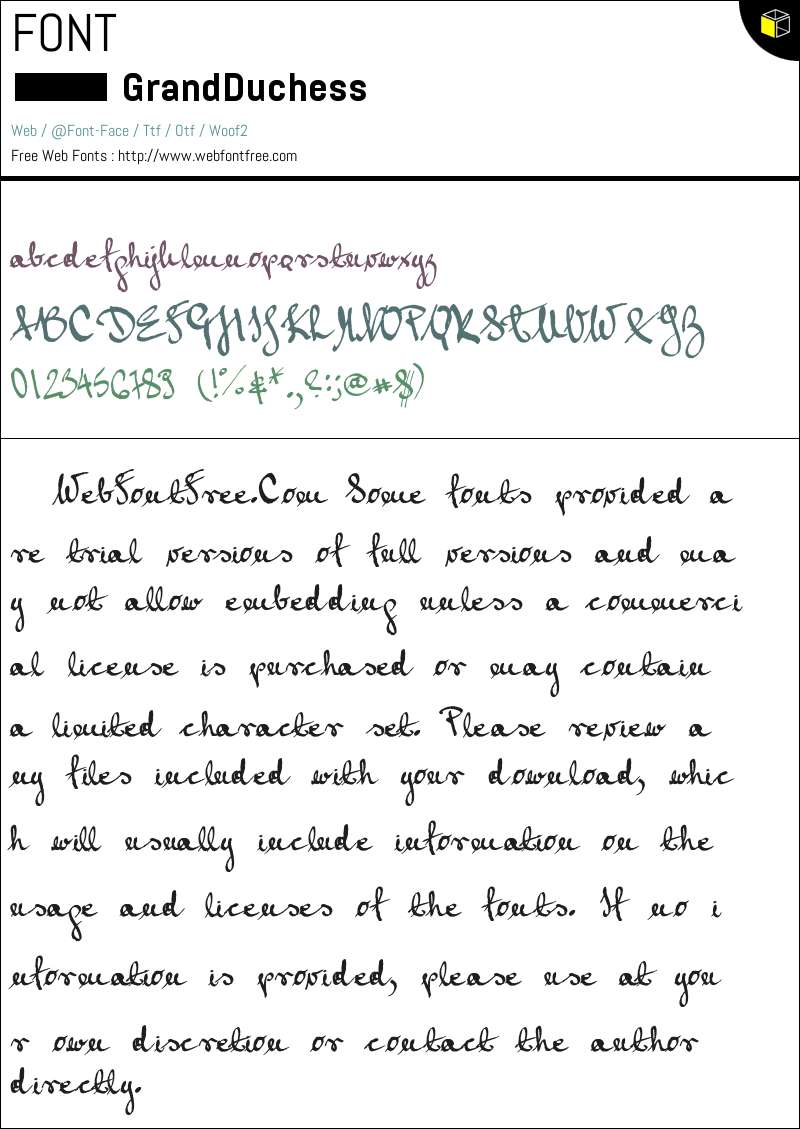 FONT
GrandDuchess
Web / @Font-Face / Ttf / Otf / Woof2
Free Web Fonts : http://www.webfontfree.com
abcdefghijklmnopqrstuvwxyz
ABCDEFGHIJKLMNOPQRSTUVWXYZ
0123456789 (!%&*.,?:;@#$)
WebFontFree.Com Some fonts provided a
re trial versions of full versions and ma
y not allow embedding unless a commerci
al license is purchased or may contain
a limited character set. Please review a
ny files included with your download, whic
h will usually include information on the
usage and licenses of the fonts. If no i
nformation is provided, please use at you
r own discretion or contact the author
directly.